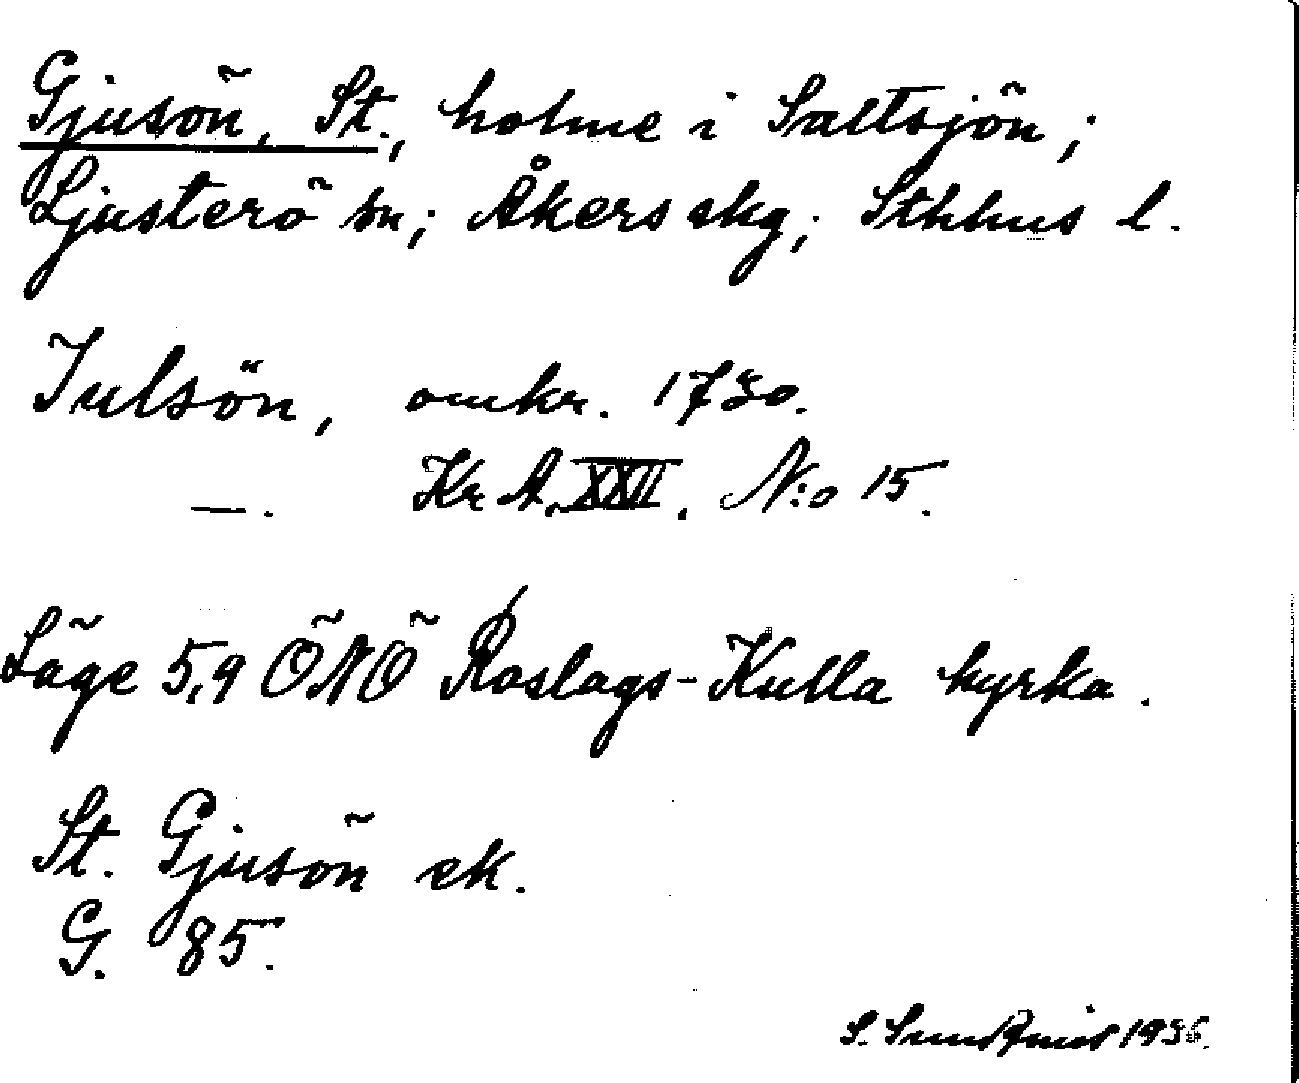 Gjusön, St., holme i Saltsjön;
Ljusterö sn; Åkers skg; Sthlms l.
Julsön, omkr. 1730.
—. Kr A. XXII. N:o 15.
Läge 5,9 ÖNÖ Roslags-Kulla kyrka.
St. Gjusön ek.
G. 85.
S. Sundqvist 1936.